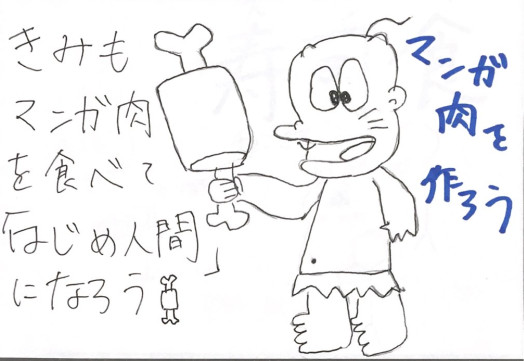 きみも
マンガ肉
を食べて
「はじめ人間」
になろう
マンガ
肉を
作ろう